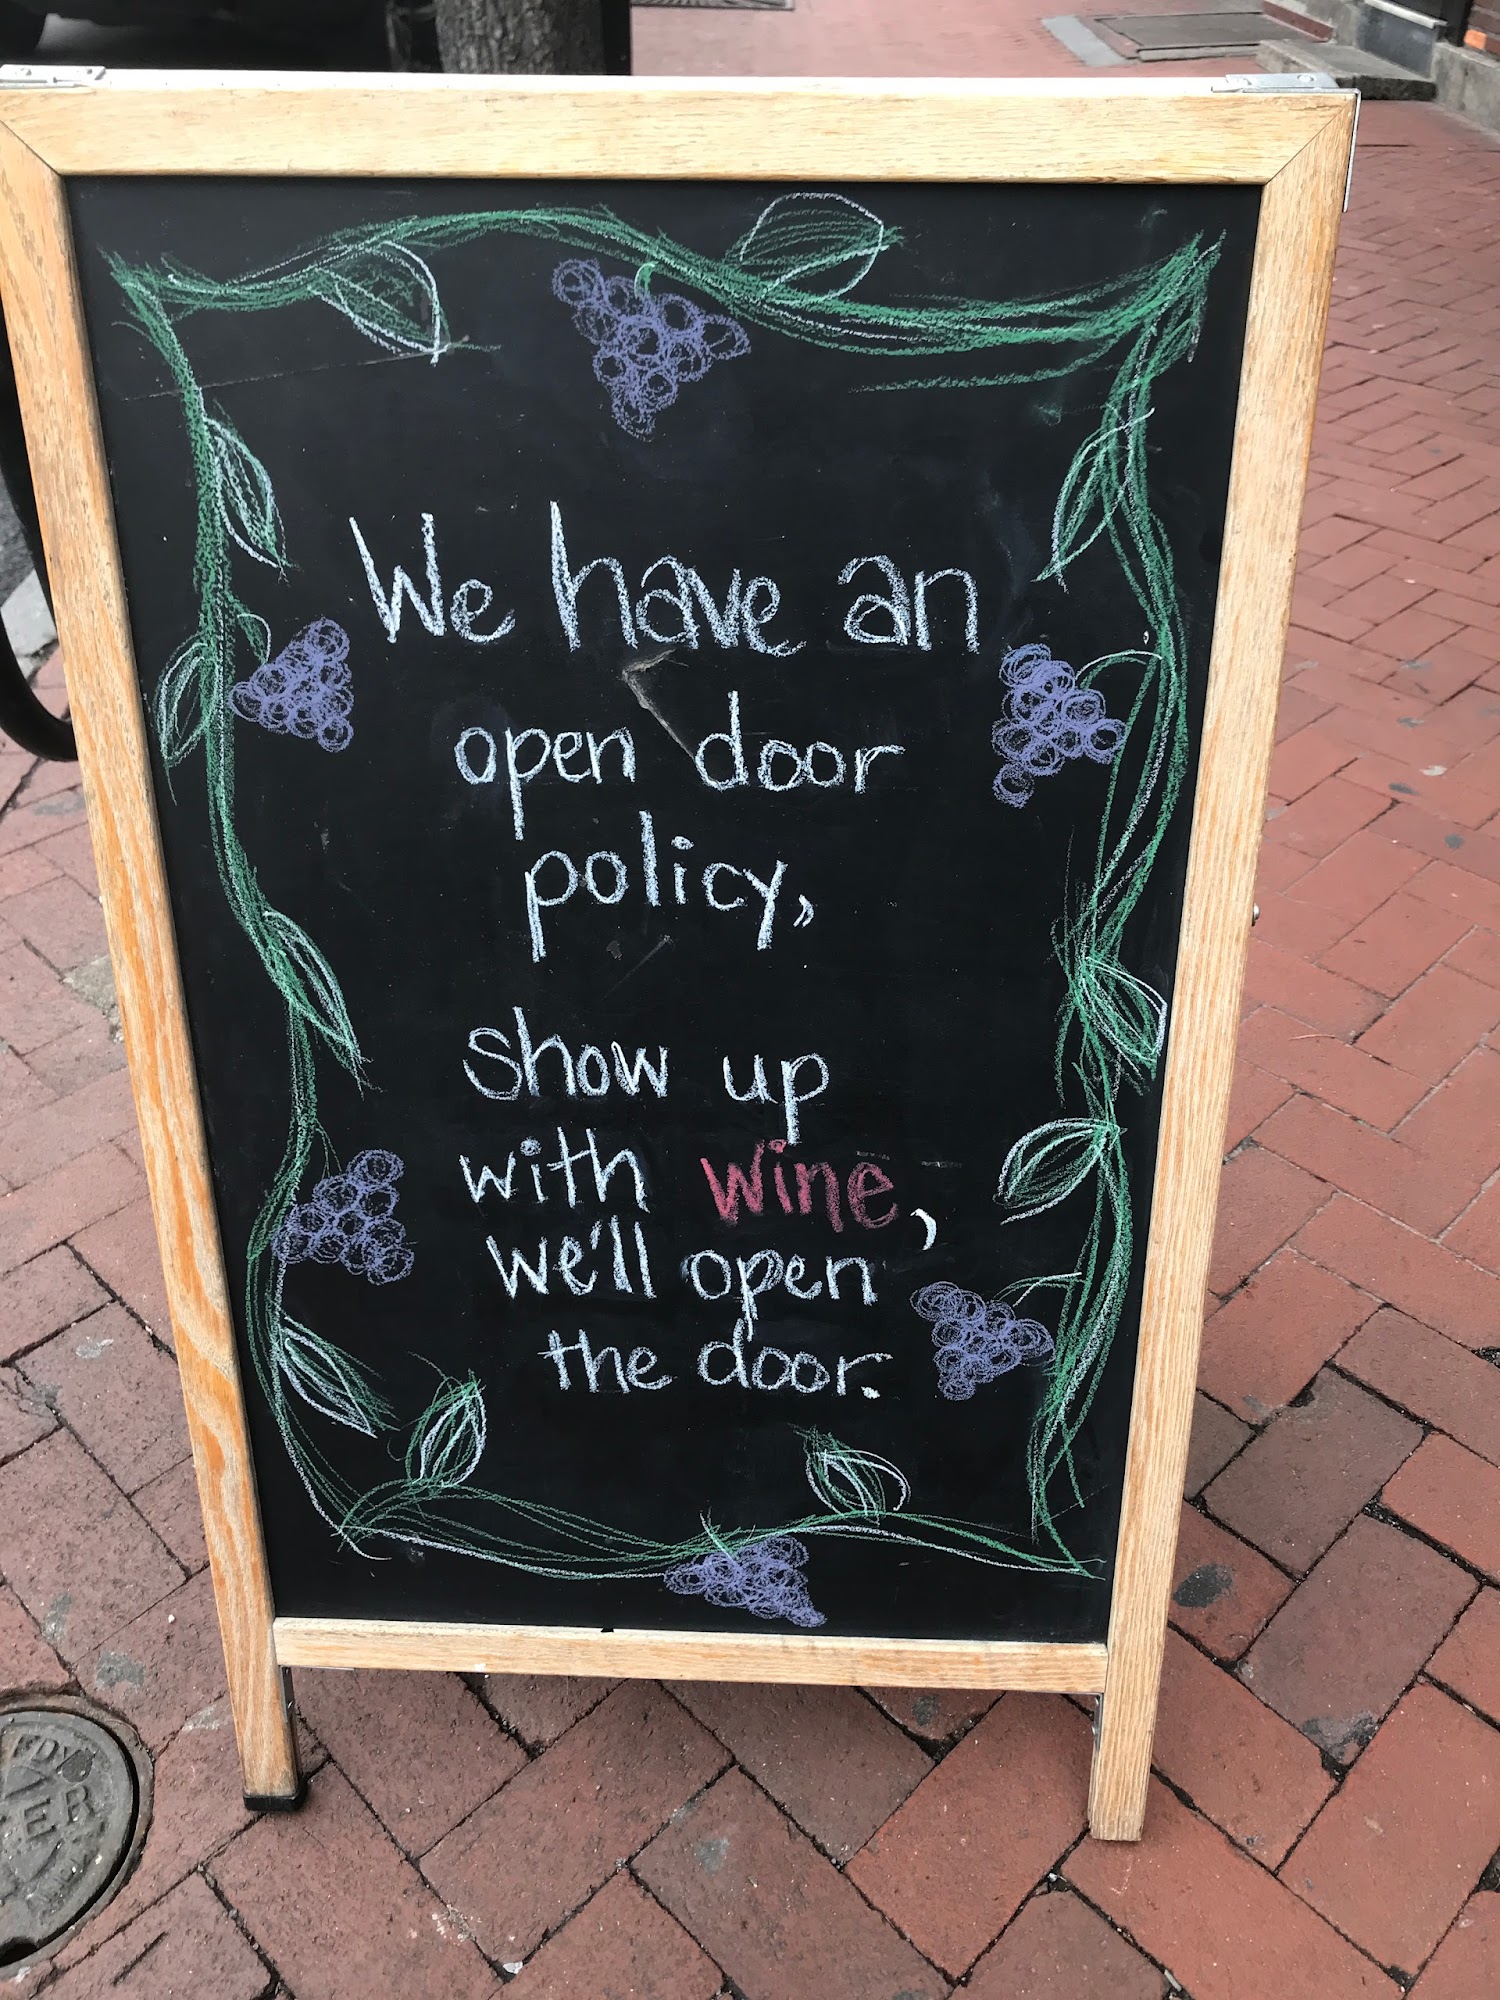 We have an
open door
policy,
show up
with wine,
we'll open
the door.